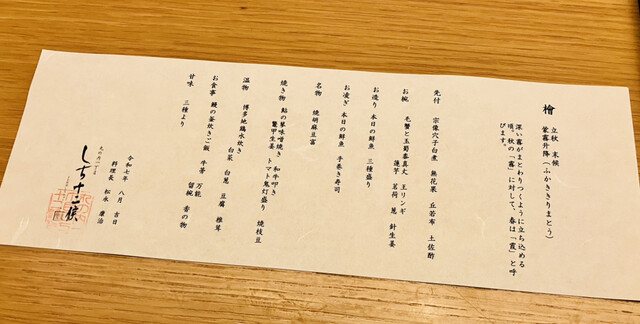 檜
立秋 末候
蒙霧升降(ふかききりまとう)
深い霧がまとわりつくように立ち込める
頃。秋の「霧」に対して、春は「霞」と呼
びます。
先付 宗像穴子白煮 無花果 丘若布 土佐酢
お椀 毛蟹と玉蜀黍真丈 王リンギ
蓮芋 茗荷 葱 針生姜
お造り 本日の鮮魚 三種盛り
お凌ぎ 本日の鮮魚 手巻き寿司
名物 焼胡麻豆富
焼き物 鮎の草味噌焼き 和牛叩き
鼈甲生姜 トマト鬼灯盛り 焼枝豆
温物 博多地鶏水炊き
白菜 白葱 豆腐 椎茸
お食事 鰻の釜炊きご飯 牛蒡 万能
留椀 香の物
甘味 三種より
令和七年 八月 吉日
料理長 松永 康治
しち十二候